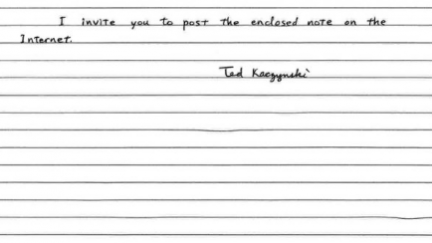 I invite you to post the enclosed note on the
Internet.
Ted Kaczynski